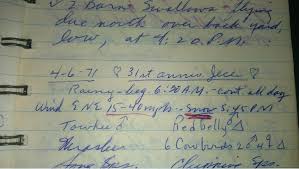 2 Barn Swallows flying
due north over back yard,
low, at 4:20 P.M.
4-6-71 ♡ 31st anniv. Jece ♡
Rainy - beg. 6:30 A.M. - cont. all day
Wind E.N.E. 15-40 mph - Snow 5:45 P.M
Towhee ♂ Redbelly
Thrasher 6 Cowbirds 2♂4♀
Song Sps. Chipping Sps.